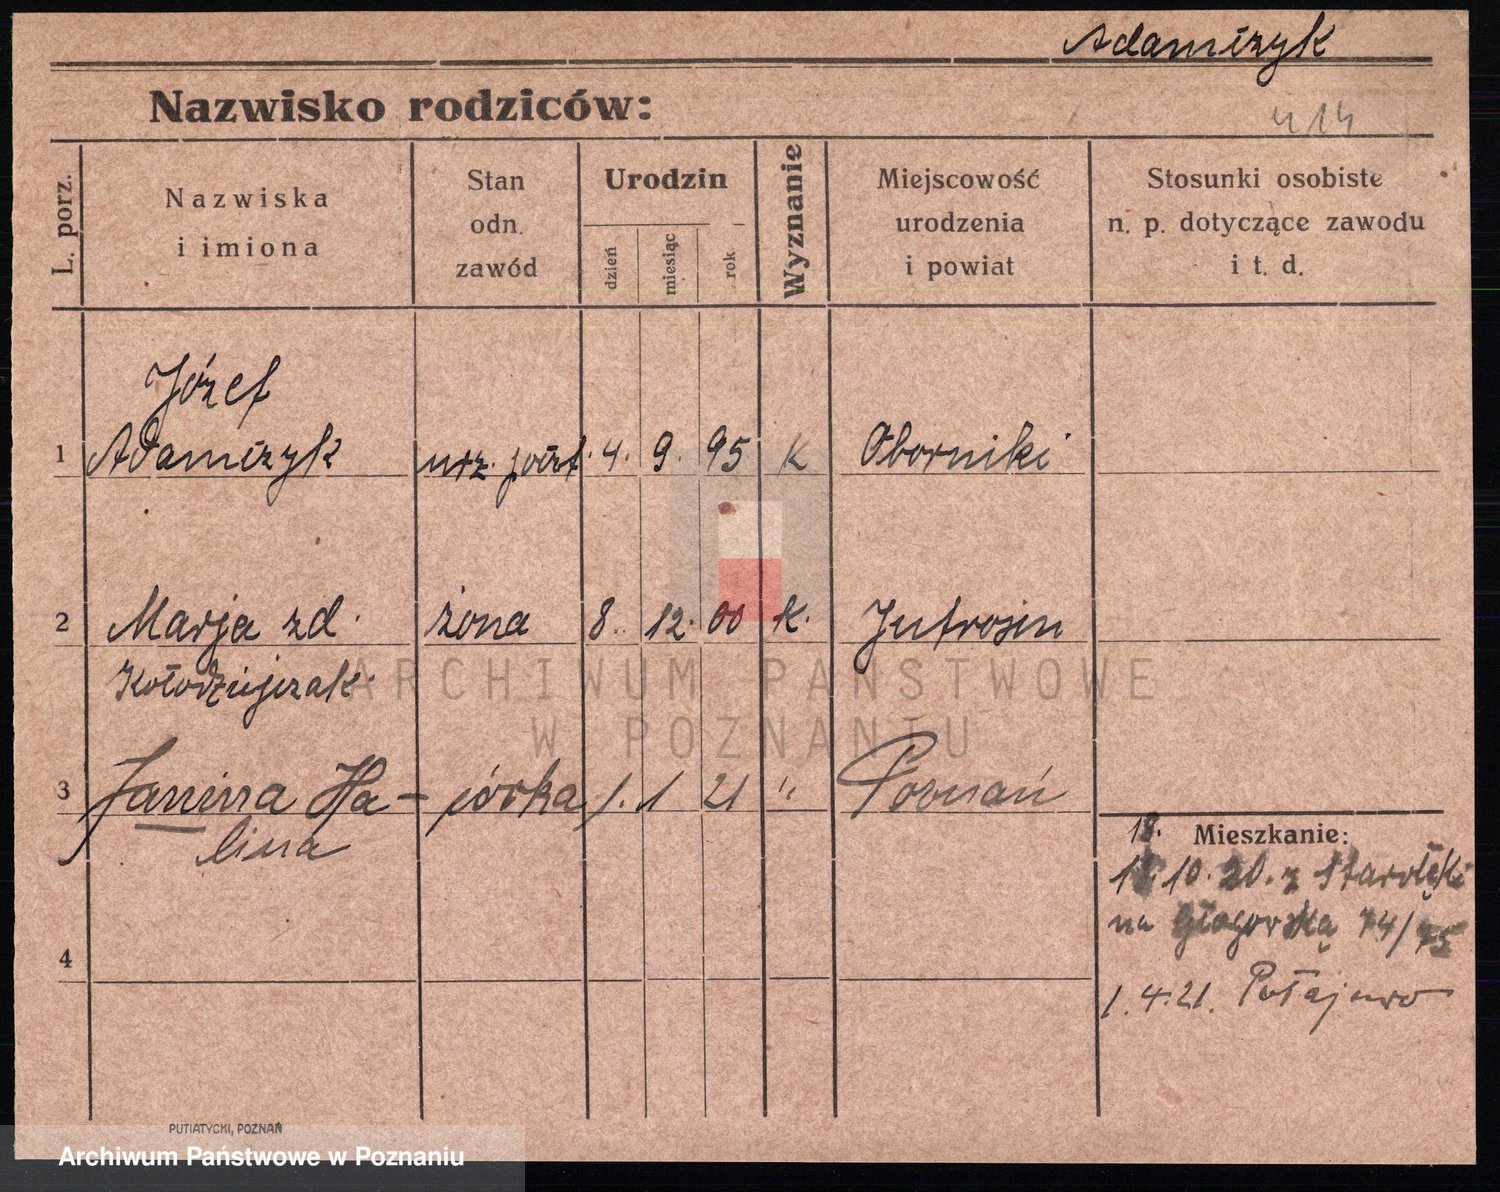 Adamczyk
Nazwisko rodziców:
414
L. porz.
Nazwiska
i imiona
Stan
odn.
zawód
Urodzin
dzień
miesiąc
rok
Wyznanie
Miejscowość
urodzenia
i powiat
Stosunki osobiste
n. p. dotyczące zawodu
i t. d.
Józef
1 Adamczyk urz. poczt. 4. 9. 95 K Oborniki
2 Marja zd. żona 8. 12. 00 K. Jutrosin
Kołodziejczak
3 Janina Ha- córka 1. 1 21 " Poznań
lina
Mieszkanie:
18.
10. 20. z Starołęki
na Głogowską 74/75
1. 4. 21. Połajewo
4
ARCHIWUM PAŃSTWOWE
W POZNANIU
PUTIATYCKI, POZNAŃ
Archiwum Państwowe w Poznaniu